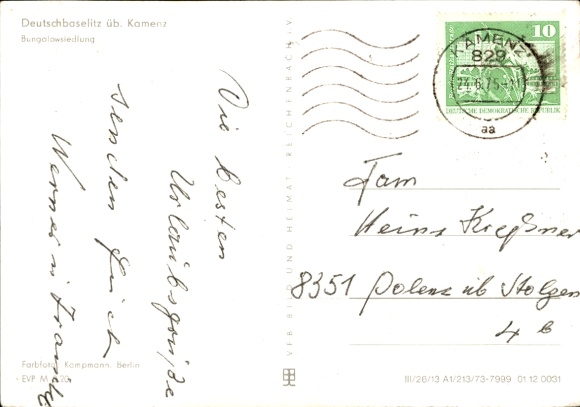 Deutschbaselitz üb. Kamenz
Bungalowsiedlung
Die besten
Urlaubsgrüße
senden Euch
Werner u
Farbfoto: Kampmann, Berlin
EVP M
VEB BILD UND HEIMAT REICHENBACH i. V.
KAMENZ
829
24.6.75
aa
10
DEUTSCHE DEMOKRATISCHE REPUBLIK
Fam
Heinz Kreßner
8351 Polenz üb Stolpen
4 b
III/26/13 A1/213/73-7999 01 12 0031